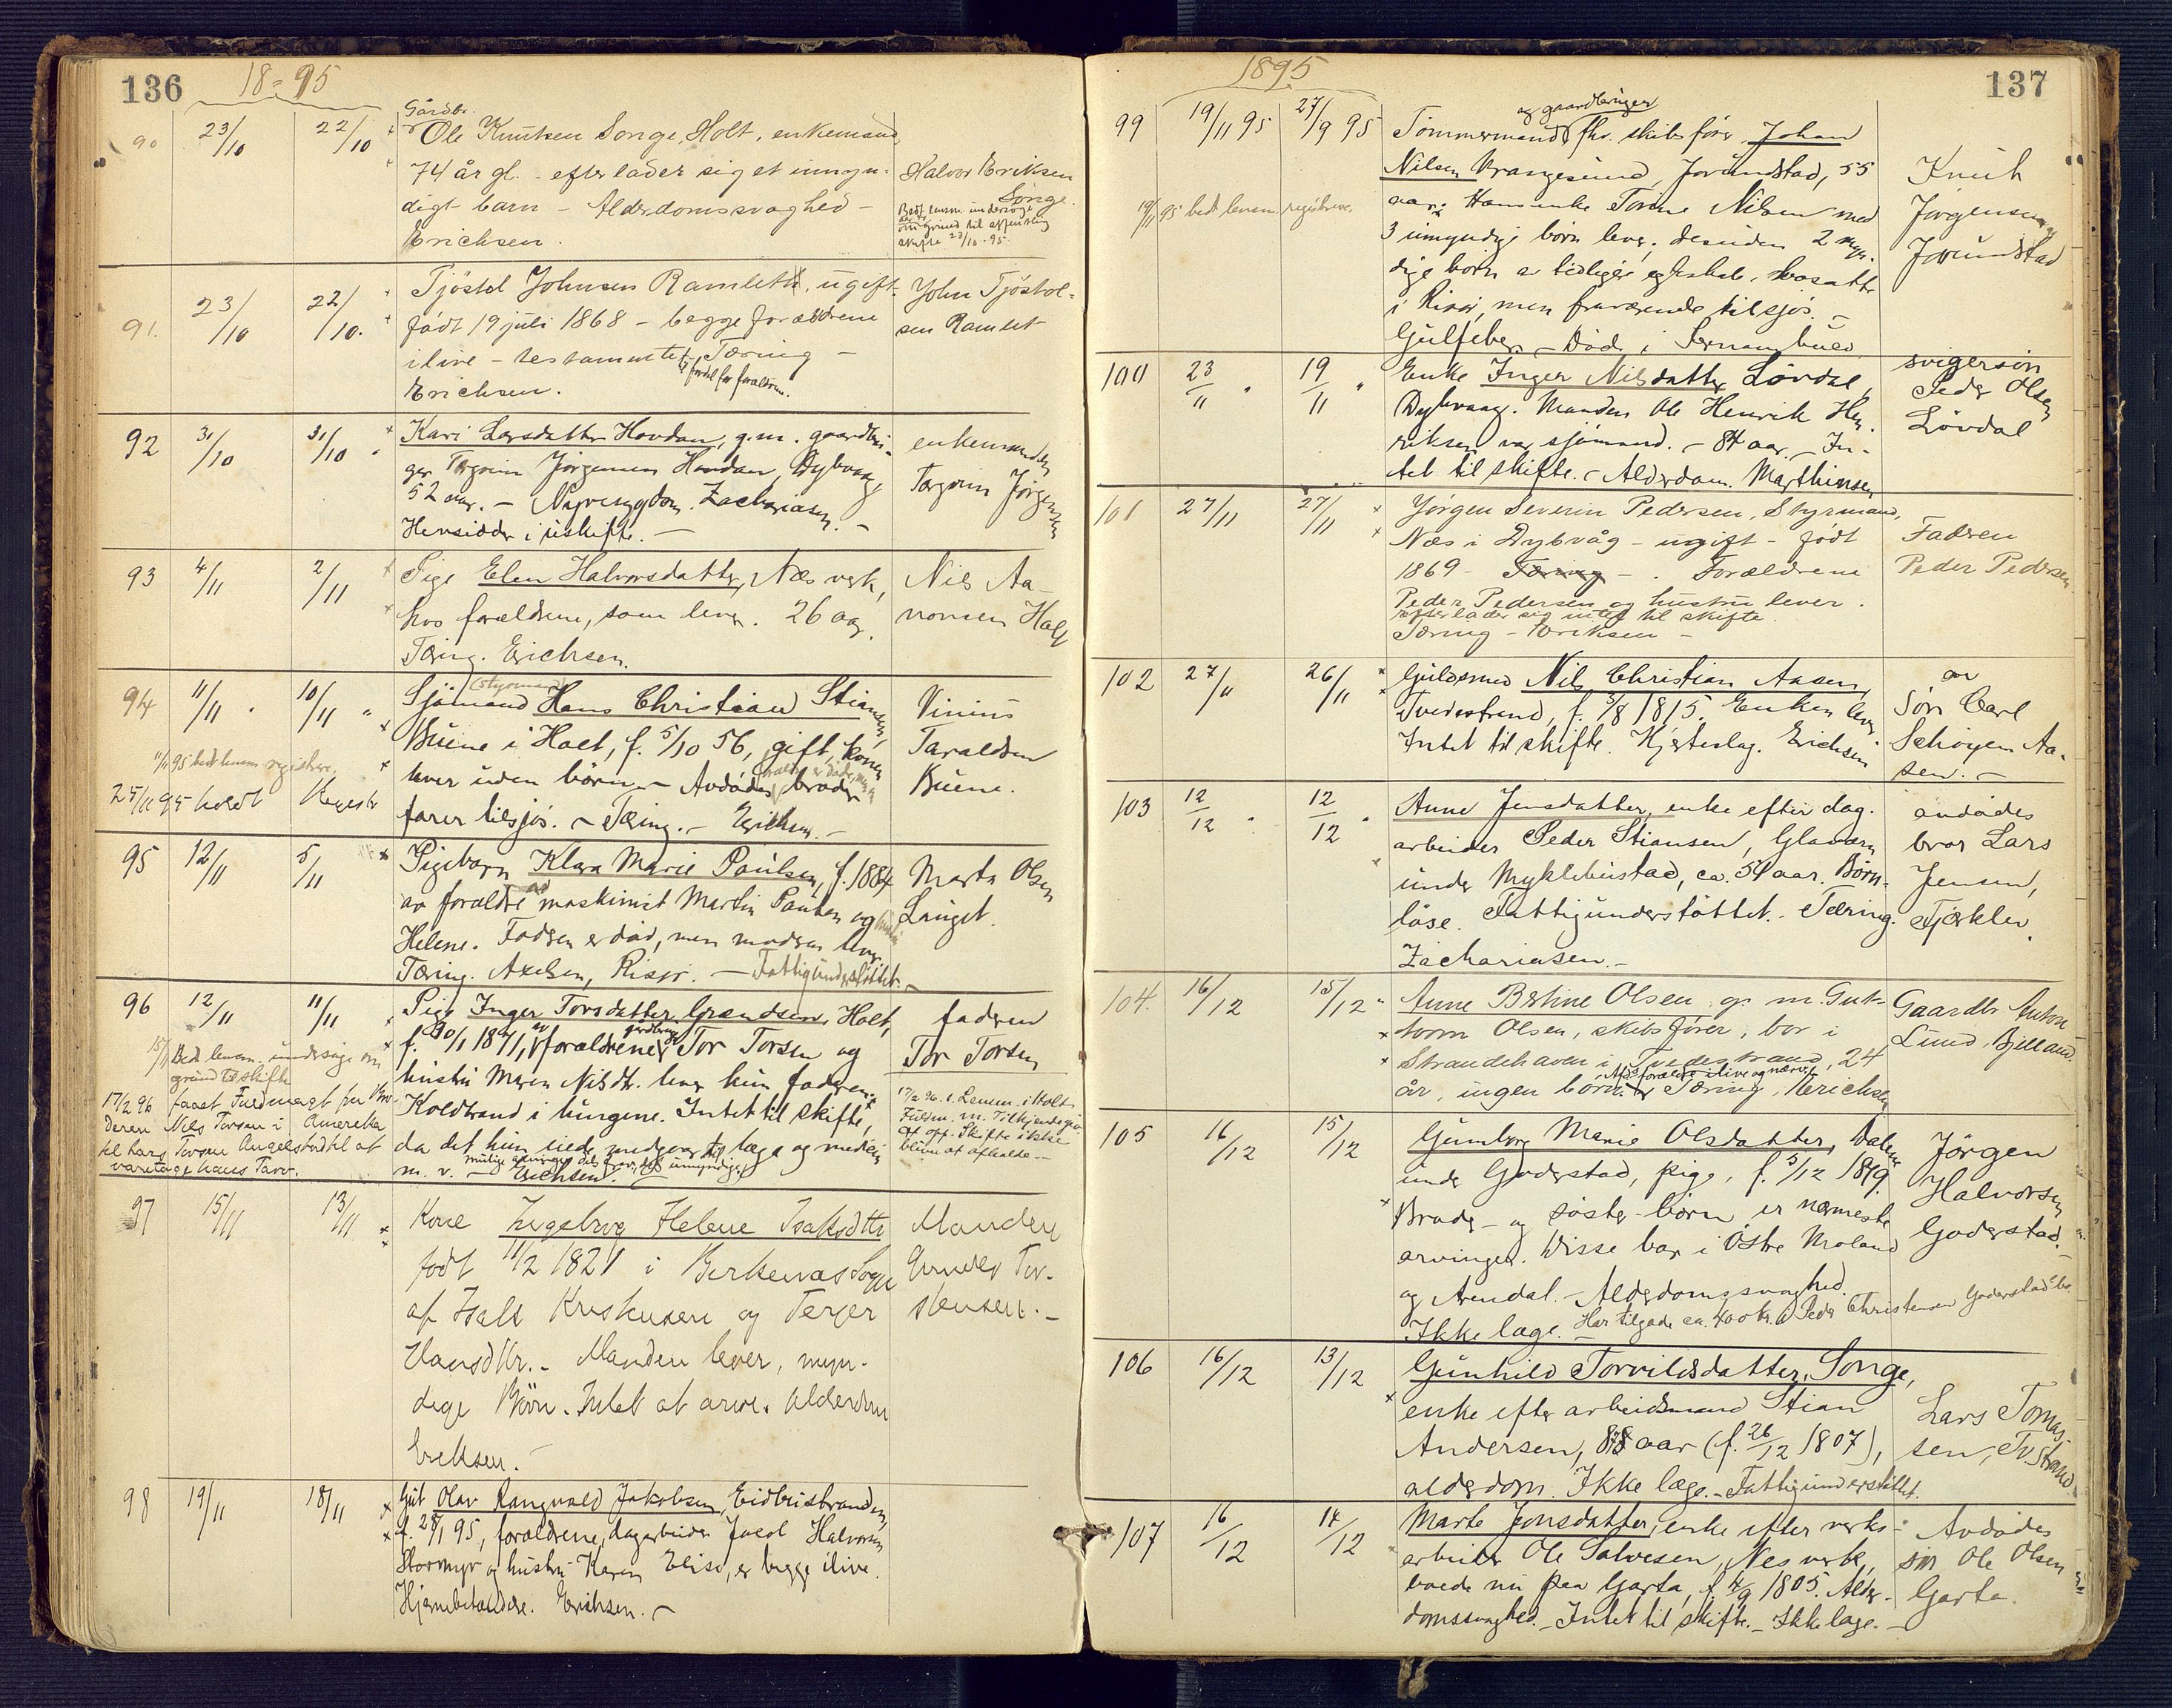 136
18-95
90 23/10 22/10 Gårdbr.
Ole Knutsen Songe, Holt, enkemand
74 år gl. - efterlader sig et umyn-
digt barn - Alderdomssvaghed -
Erichsen.
Halvor Eriksen
Songe.
Bedt lensm. undersøge
om grund til offentlig
skifte 23/10-95.
91. 23/10 22/10. Tjöstol Johnsen Ramleth, ugift
født 19 juli 1868 - begge forældrene
ilive - testamentet Tæring -
til fordel for forældrene.
Erichsen.
John Tjöstol-
sen Ramlet
92 31/10 31/10 Kari Larsdatter Hovdan, g.m. gaardbru-
ger Torgrim Jørgensen Hovdan, Dybvaag,
52 aar. - Nyresygdom. Zachariasen. -
Hensidder i uskifte. -
enkemanden
Torgrim Jørgensen
93 4/11 2/11 Pige Elen Halvorsdatter, Næs verk,
hos forældrene, som lever. 26 aar.
Tæring. Erichsen.
Nils Aa-
nonsen Holt
94 11/11 10/11 Sjømand (styrmand) Hans Christian Stiansen,
Buene i Holt, f. 5/10 56, gift, konen
lever uden børn. - Avdødes broder
farer tilsjøs. - Tæring. - Erichsen. -
11/11 95 bedt lensm. registrere.
25/11 95 holdt Registr
Vinius
Taraldsen
Buene.
95 12/11 5/11 Pigebarn Klara Marie Paulsen, f. 1884
av forældre maskinist Martin Paulsen og
Helene. Faderen er død, men moderen lever.
Tæring. Axelsen, Risør. - Fattigunderstøttet. -
Marta Olsen
Lauget.
96 12/11 11/11 Pige Inger Torsdatter Grændsen, Holt,
f. 30/1 1871, av forældrene gårdbruger Tor Torsen og
hustru Maren Nilsdtr. lever kun faderen.
Koldbrand i lungene. Intet til skifte,
da det hun eiede medgaar til læge og medicin
m. v. - Erichsen.
15/11 Bedt lensm. undersøge om
grund til skifte
17/2 96 faaet Fuldmagt fra Bro-
deren Nils Torsen i Amerika
til Lars Torsen Angelstad til at
varetage hans Tarv.
faderen
Tor Torsen
97 15/11 13/11 Kone Ingeborg Helene Isaksdtr
født 11/2 1821 i Birkenæs Sogn
af Isak Kristensen og Terjer
Hansdtr. - Manden lever, myn-
dige Børn. Intet at arve. Alderdom
Eriksen. -
Manden
Gunder Tor-
stensen. -
98 19/11 18/11 Gut Olav Rangvald Jakobsen, Eidbustranden,
f. 28/1 95, forældrene, dagarbeider Jacob Halvorsen
Stormyr og hustru Karen Elise, er begge ilive.
Hjernebetændelse. Erichsen. -
1895
137
99 19/11 95 27/9 95 Tømmermand og gaardbruger fhv. skibsfører Johan
Nilsen Krangesund, Jorundstad, 55
aar. Hans enke Tomine Nilsen med
3 umyndige børn lever. Desuden 2 myn-
dige børn av tidligere egteskab, bosatte
i Risør, men fraværende tilsjøs. -
Gulfeber. - Død i Pernambuco
19/11 95 bedt lensm. registrere.
Knut
Jørgensen
Jorundstad
100 23/11 19/11 Enke Inger Nilsdatter Løvdal,
Dybvaag. Manden Ole Henrik Hen-
riksen var sjømand. - 84 aar. - In-
tet til skifte. - Alderdom. Marthinsen
svigersøn
Peder Olsen
Løvdal
101 27/11 27/11 Jørgen Severin Pedersen, Styrmand,
Næs i Dybvåg - ugift - født
1869 - Tæring - . Forældrene
Peder Pedersen og hustru lever.
efterlader sig intet til skifte.
Tæring - Eriksen -
Faderen
Peder Pedersen
102 27/11 26/11 Guldsmed Nils Christian Aasen,
Tvedestrand, f. 3/8 1815. Enken lever.
Intet til skifte. Hjerteslag. Erichsen
Søn Carl
Schøyen Aa-
sen. -
103 12/12 12/12 Anne Jensdatter, enke efter dag-
arbeider Peder Stiansen, Glaveren
under Myklebustad, ca. 50 aar. Børn-
løse. Fattigunderstøttet. - Tæring.
Zachariasen. -
avdødes
bror Lars
Jensen,
Fjærklev.
104. 16/12 15/12 Anne Bertine Olsen g. m. Gut-
torm Olsen, skibsfører, bor i
Strandehaven i Tvedestrand, 24
år, ingen børn. Tæring, Erichsen
Afd. forældre ilive og nærv.
Gaardbr Anton
Lund, Bjelland
105 16/12 15/12 Gunborg Marie Olsdatter, Dalene
under Goderstad, pige, f. 5/12 1819.
Broder- og søster-børn er nærmeste
arvinger. Disse bor i Østre Moland
og Arendal. - Alderdomssvaghed.
Ikke læge. - Har tilgode ca. 400 kr. a Peder Christensen Goderstads bo
Jørgen
Halvorsen
Goderstad. -
106 16/12 13/12 Gunhild Torvildsdatter, Songe,
enke efter arbeidsmand Stian
Andersen, 88 aar (f. 26/12 1807),
alderdom. Ikke læge. - Fattigunderstøttet.
Lars Tomas-
sen, Tv.strand.
107 16/12 14/12 Marte Jonsdatter, enke efter verks-
arbeider Ole Salvesen, Nes verk,
boede nu paa Garta, f. 4/9 1805. Alder-
domssvaghed. - Intet til skifte. - Ikke læge. -
Avdødes
søn Ole Olsen
Garta.